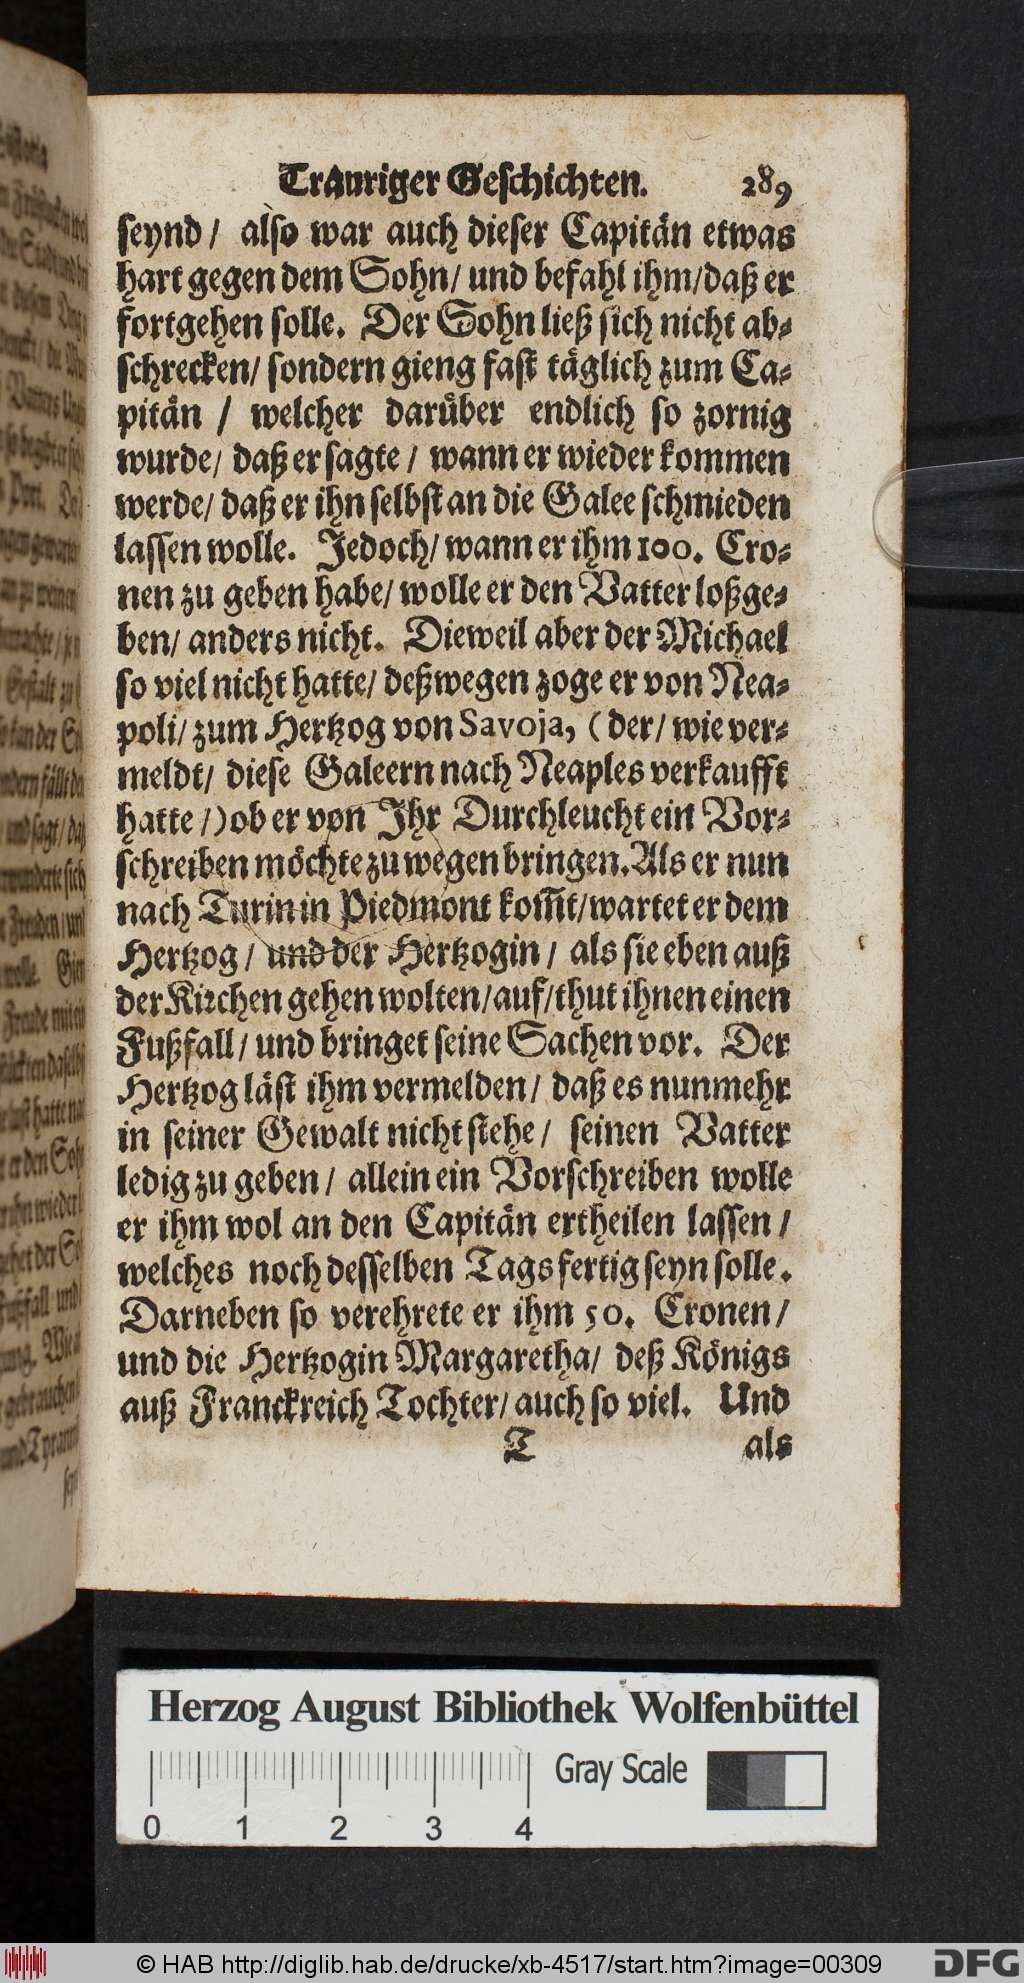 Trauriger Geschichten. 289
seynd / also war auch dieser Capitän etwas
hart gegen dem Sohn / und befahl ihm / daß er
fortgehen solle. Der Sohn ließ sich nicht ab-
schrecken / sondern gieng fast täglich zum Ca-
pitän / welcher darüber endlich so zornig
wurde / daß er sagte / wann er wieder kommen
werde / daß er ihn selbst an die Galee schmieden
lassen wolle. Jedoch / wann er ihm 100. Cro-
nen zu geben habe / wolle er den Vatter loßge-
ben / anders nicht. Dieweil aber der Michael
so viel nicht hatte / deßwegen zoge er von Nea-
poli / zum Hertzog von Savoja, ( der / wie ver-
meldt / diese Galeern nach Neaples verkaufft
hatte / ) ob er von Ihr Durchleucht ein Vor-
schreiben möchte zu wegen bringen. Als er nun
nach Turin in Piedmont kom̄t / wartet er dem
Hertzog / und der Hertzogin / als sie eben auß
der Kirchen gehen wolten / auf / thut ihnen einen
Fußfall / und bringet seine Sachen vor. Der
Hertzog läst ihm vermelden / daß es nunmehr
in seiner Gewalt nicht stehe / seinen Vatter
ledig zu geben / allein ein Vorschreiben wolle
er ihm wol an den Capitän ertheilen lassen /
welches noch desselben Tags fertig seyn solle.
Darneben so verehrete er ihm 50. Cronen /
und die Hertzogin Margaretha / deß Königs
auß Franckreich Tochter / auch so viel. Und
T als
Herzog August Bibliothek Wolfenbüttel
Gray Scale
0 1 2 3 4
© HAB http://diglib.hab.de/drucke/xb-4517/start.htm?image=00309
DFG